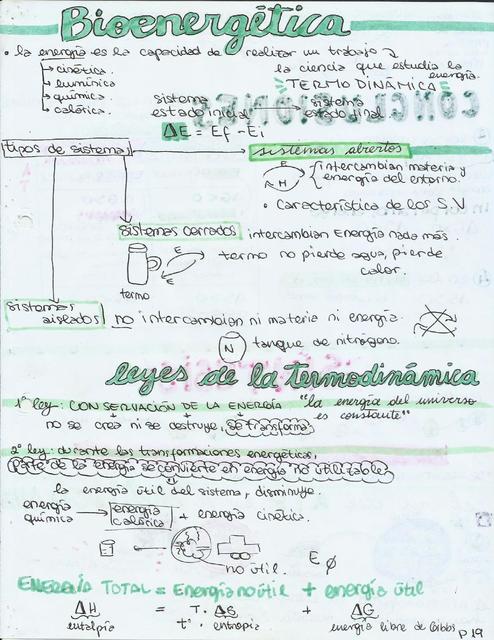 Bioenergética
• la energía es la capacidad de realizar un trabajo
→ cinética.
→ lumínica
→ química.
→ calórica.
la ciencia que estudia la energía.
TERMODINÁMICA
sistema estado inicial → sistema estado final.
ΔE = Ef - Ei
tipos de sistema
sistemas abiertos
E
H
intercambian materia y
energía del entorno.
• Característica de los S.V
sistemas cerrados intercambian Energía nada más.
E
E
termo no pierde agua, pierde
calor.
termo
sistemas
aislados
no intercambian ni materia ni energía.
N
tanque de nitrógeno.
leyes de la termodinámica
1º ley: CONSERVACIÓN DE LA ENERGÍA "la energía del universo
es constante"
no se crea ni se destruye, se transforma
2º ley: durante las transformaciones energéticas,
parte de la energía se convierte en energía no útilizable
la energía útil del sistema, disminuye.
energía
química → energía
calórica + energía cinética.
no útil.
E ∅
ENERGÍA TOTAL = Energía no útil + energía útil
ΔH = T. ΔS + ΔG
entalpía tº entropía energía libre de Gibbs
P19